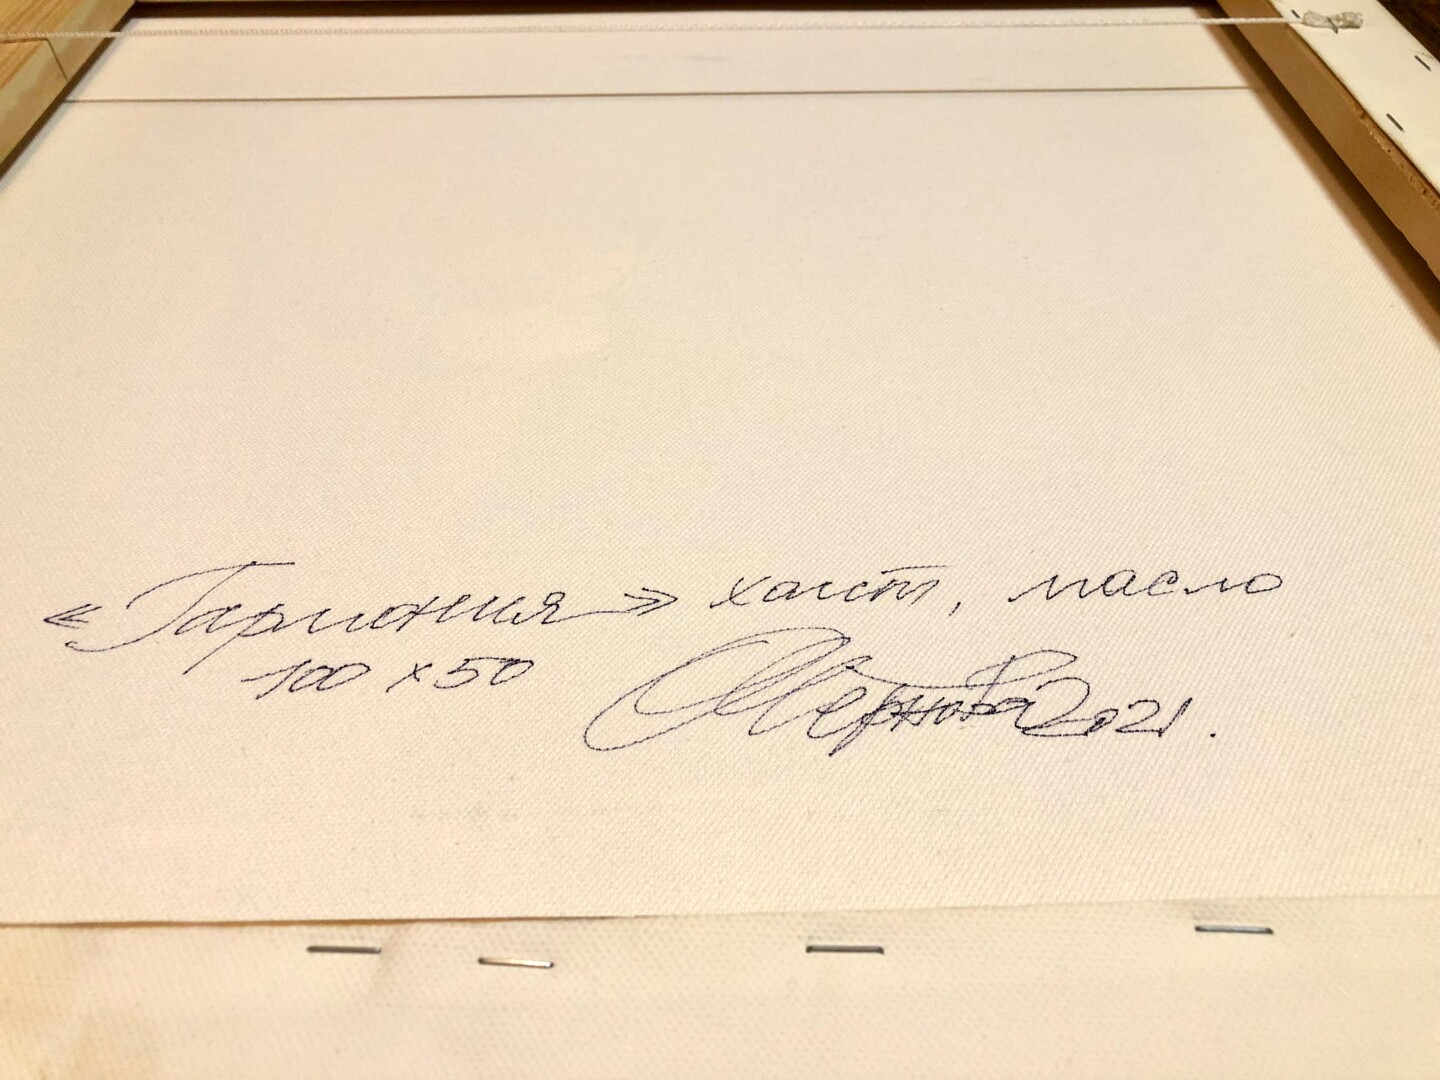 «Гармония» холст, масло
100 x 50 2021.